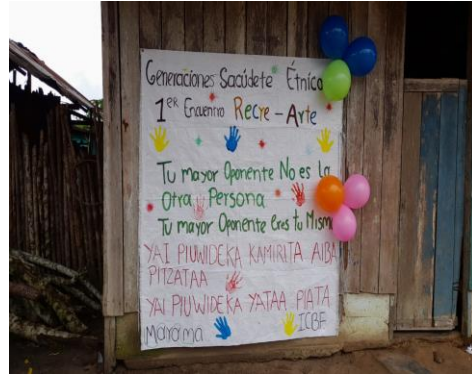 Generaciones Sacúdete Étnico
1ER Encuentro Recre - Arte
Tu mayor Oponente No es la
Otra Persona
Tu mayor Oponente Eres tu Mism
YAI PIUWIDEKA KAMIRITA AIBA
PITZATAA
YAI PIUWIDEKA YATAA PIATA
Mayama ICBF